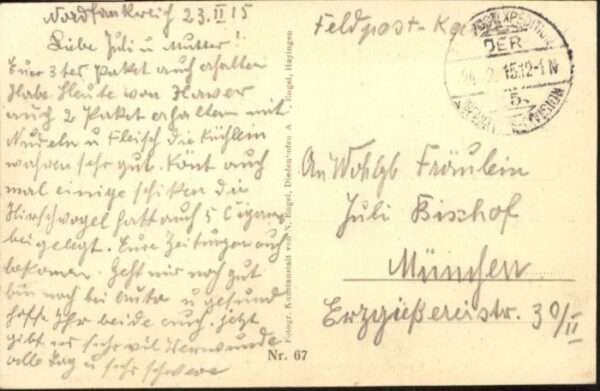 Nordfrankreich 23.II 15
Liebe Juli u Mutter!
Euer 3tes Paket auch erhalten
Habe Heute von
auch 2 Paket erhalten mit
Nudeln u Fleisch die Küchlein
wahren sehr gut. Könt auch
mal einige schiken die
Hirschvogel hatt auch 5 Cigarr
beigelegt. Eure Zeitungen auch
bekomen. Geht mir noch gut
bin noch bei u gesund
hoffe Ihr beide auch. jetzt
gibt es sehr vil Verwunde
alle Tag u sehr schwere
Photogr. Kunstanstalt von N. Engel, Diedenhofen
Engel, Hayingen
Nr. 67
Feldpost-
POSTEXPEDITION
DER
15.12-1 N
5.
DIVISION
An Wohlgb Fräulein
Juli Bischof
München
Erzgießereistr. 30/II